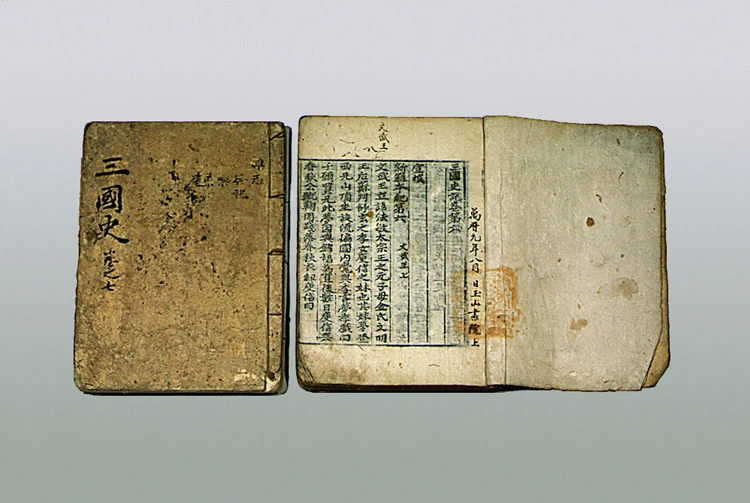 三國史 卷之七
祭祀
樂
文武王
萬曆元年八月 日玉山書院上
三國史記卷第六
新羅本紀第六 文武王上
文武王立諱法敏太宗王之元子母金氏文明
王后蘇判舒玄之季女庾信之妹也其姊夢登
西兄山頂坐旋流徧國內覺與季言夢季戲曰
予願買兄此夢因與錦裙爲直後數日庾信與
春秋公蹴鞠因踐落春秋衣紐庾信曰